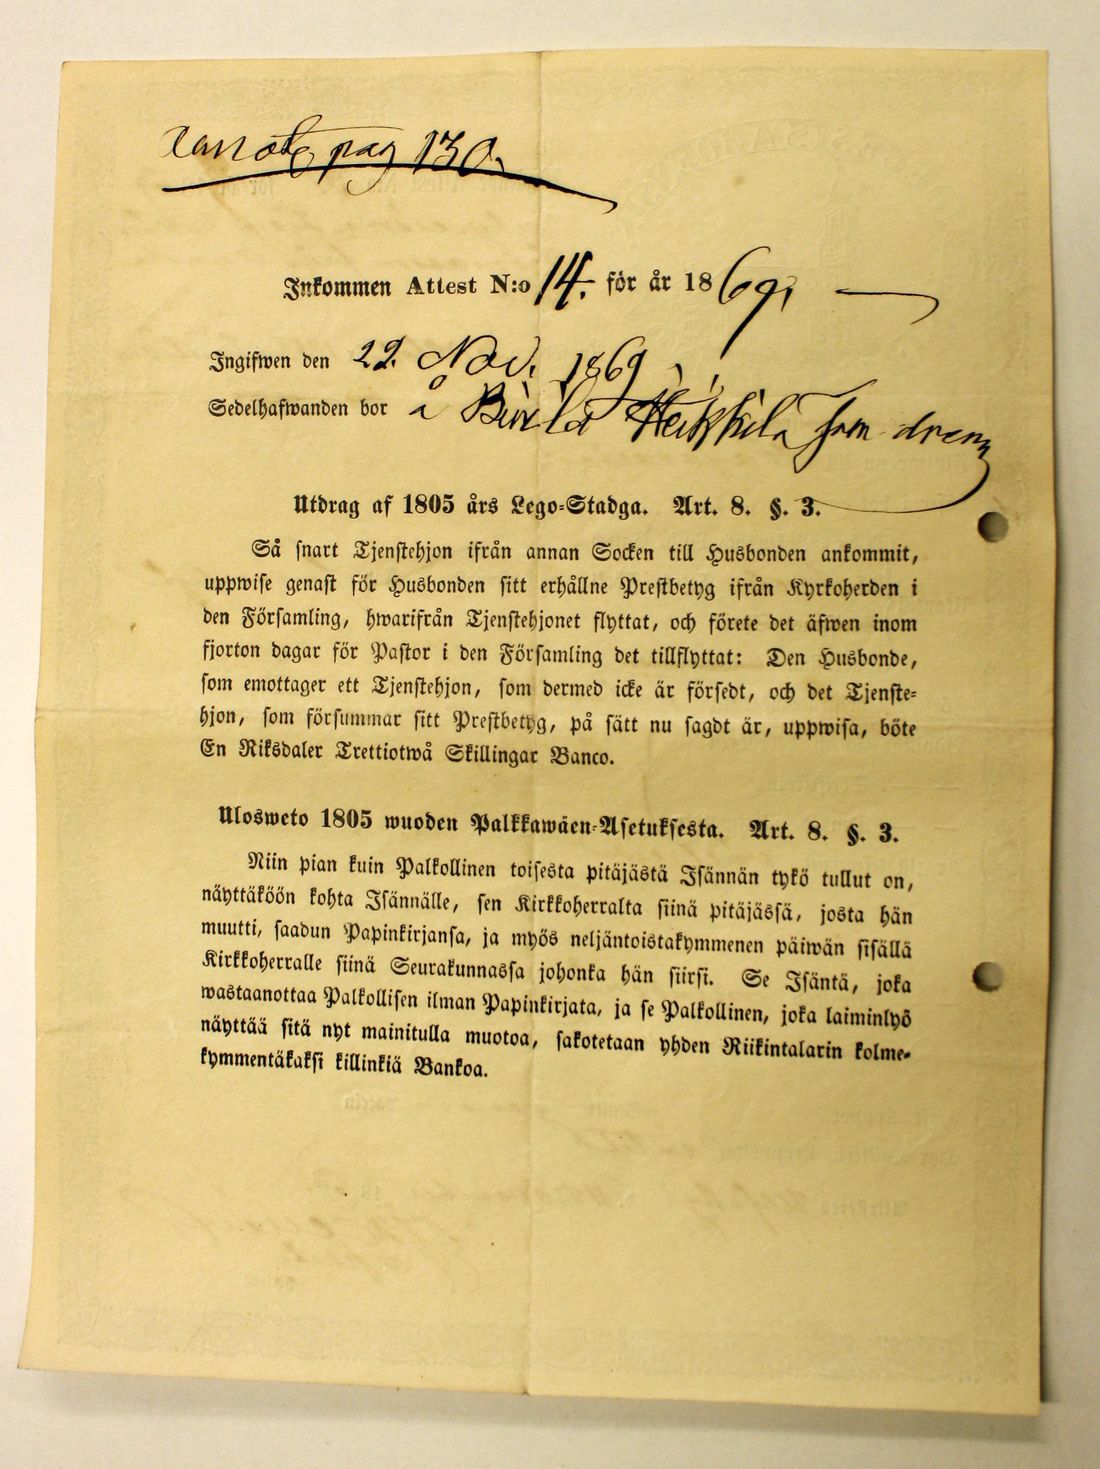 pag 130.
Inkommen Attest N:o 14. för år 1869.
Ingifwen den 22. Nov. 1869
Sedelhafwanden bor å Heikkilä
Utdrag af 1805 års Lego-Stadga. Art. 8. §. 3.
Så snart Tjenstehjon ifrån annan Socken till Husbonden ankommit,
uppwise genast för Husbonden sitt erhållne Prestbetyg ifrån Kyrkoherden i
den Församling, hwarifrån Tjenstehjonet flyttat, och förete det äfwen inom
fjorton dagar för Pastor i den Församling det tillflyttat: Den Husbonde,
som emottager ett Tjenstehjon, som dermed icke är försedt, och det Tjenste-
hjon, som försummar sitt Prestbetyg, på sätt nu sagdt är, uppwisa, böte
En Riksdaler Trettiotwå Skillingar Banco.
Ulosweto 1805 wuoden Palkkawäen-Asetuksesta. Art. 8. §. 3.
Niin pian kuin Palkollinen toisesta pitäjästä Isännän tykö tullut on,
näyttäköön kohta Isännälle, sen Kirkkoherralta siinä pitäjässä, josta hän
muutti, saadun Papinkirjansa, ja myös neljäntoistakymmenen päiwän sisällä
Kirkkoherralle siinä Seurakunnassa johonka hän siirsi. Se Isäntä, joka
wastaanottaa Palkollisen ilman Papinkirjata, ja se Palkollinen, joka laiminlyö
näyttää sitä nyt mainitulla muotoa, sakotetaan yhden Riikintalarin kolme-
kymmentäkaksi killinkiä Bankoa.